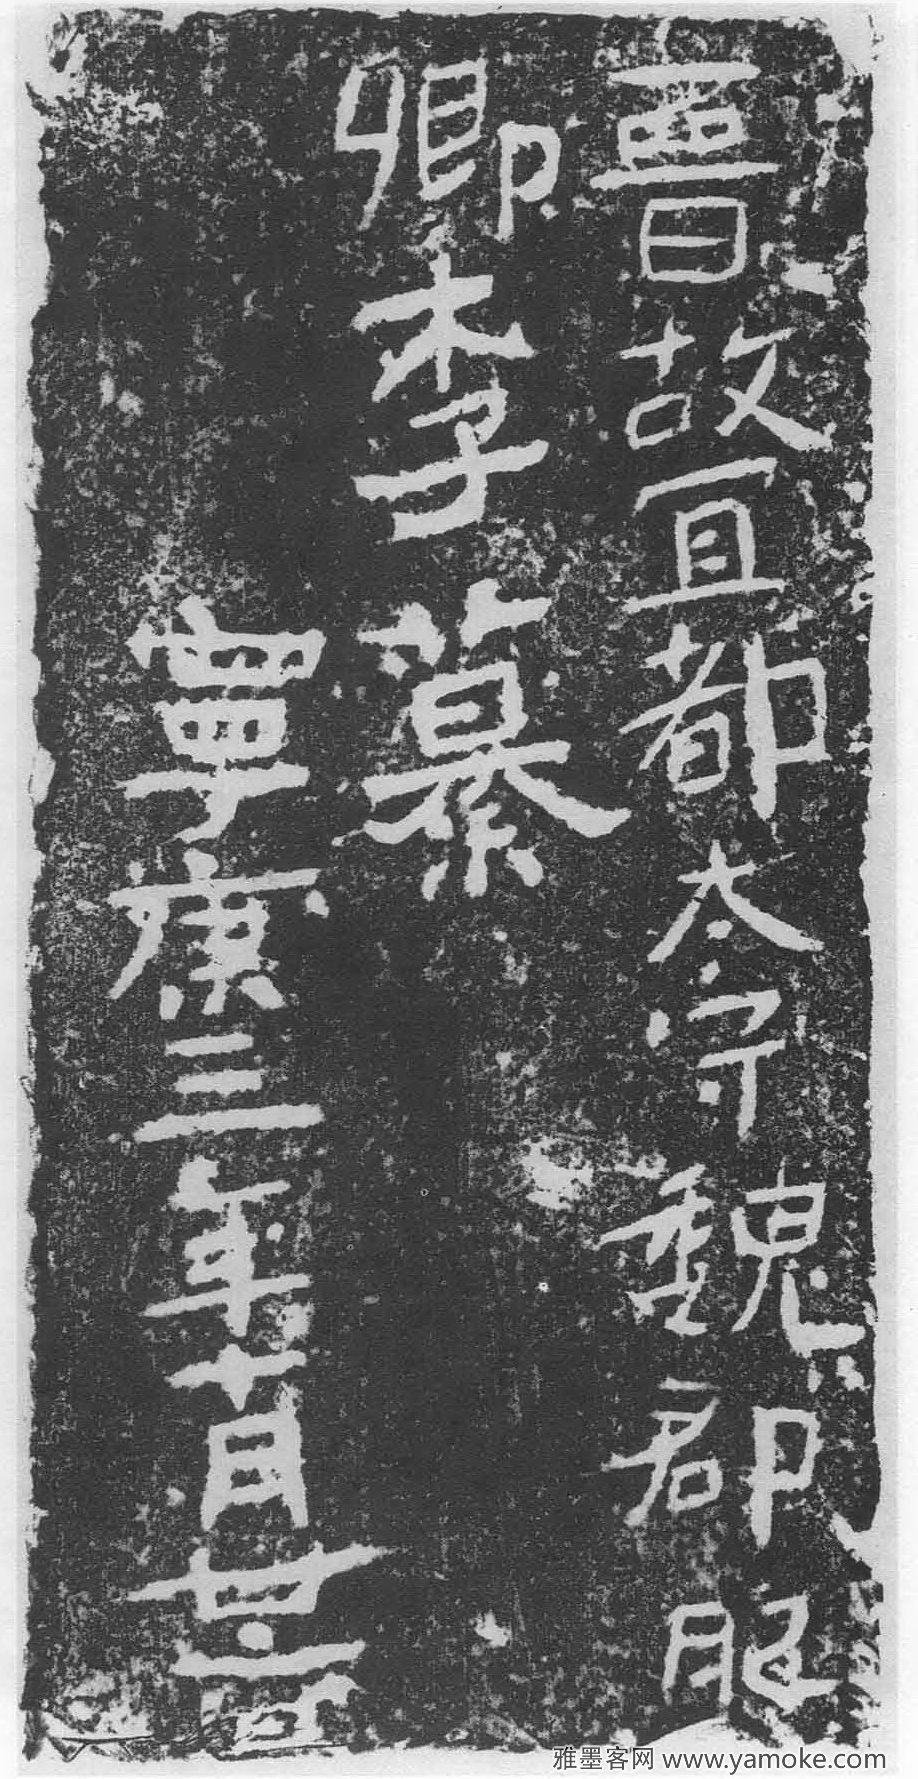 晉故宜都太守魏郡肥
鄉李纂
寧康三年十月廿
雅墨客网 www.yamoke.com